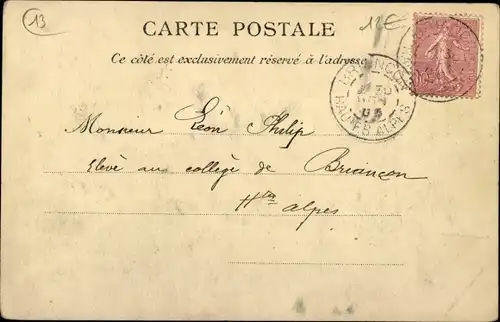 13
12€
CARTE POSTALE
Ce côté est exclusivement réservé à l'adresse
BRIANÇON
HAUTES ALPES
Monsieur Léon Philip
Elève au collège de Briançon
Htes Alpes